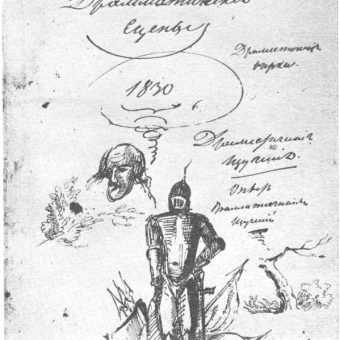 Драмматическія
Сцены
1830
Драматическіе
очерки.
Драматическія
изученія
Опыт
Драматическихъ
Изученій